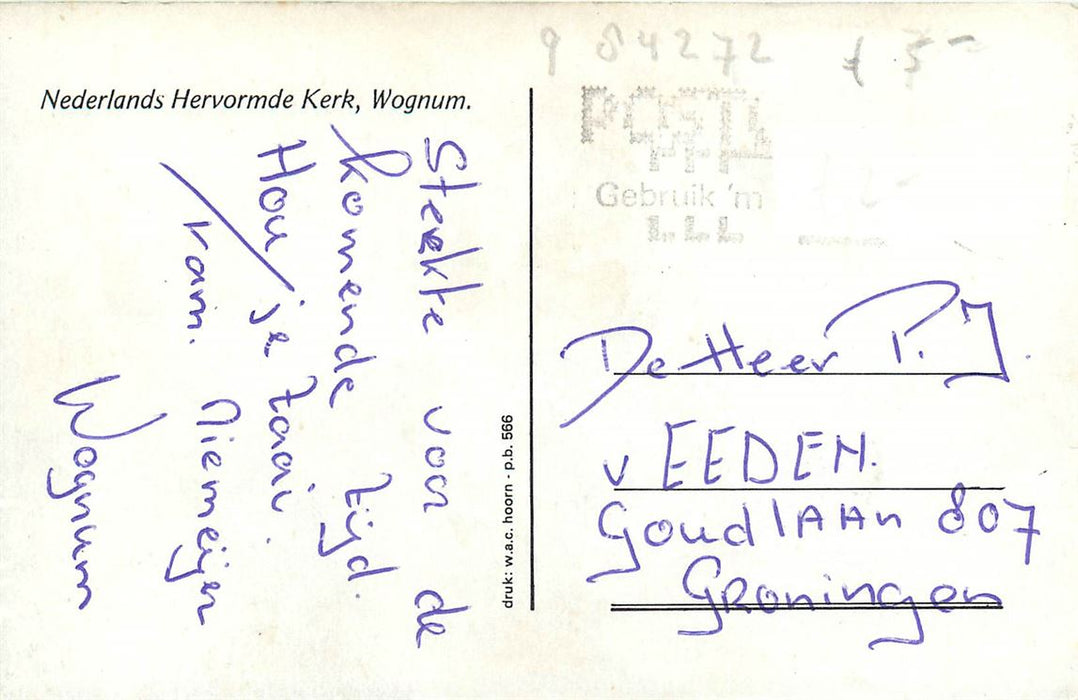 9 84272 f 5-
Nederlands Hervormde Kerk, Wognum.
Sterkte voor de
komende tijd.
Hou je taai.
Fam. Niemeijer
Wognum
druk: w.a.c. hoorn - p.b. 566
Gebruik 'm
De Heer P. J.
v EEDEN.
Goudlaan 807
Groningen